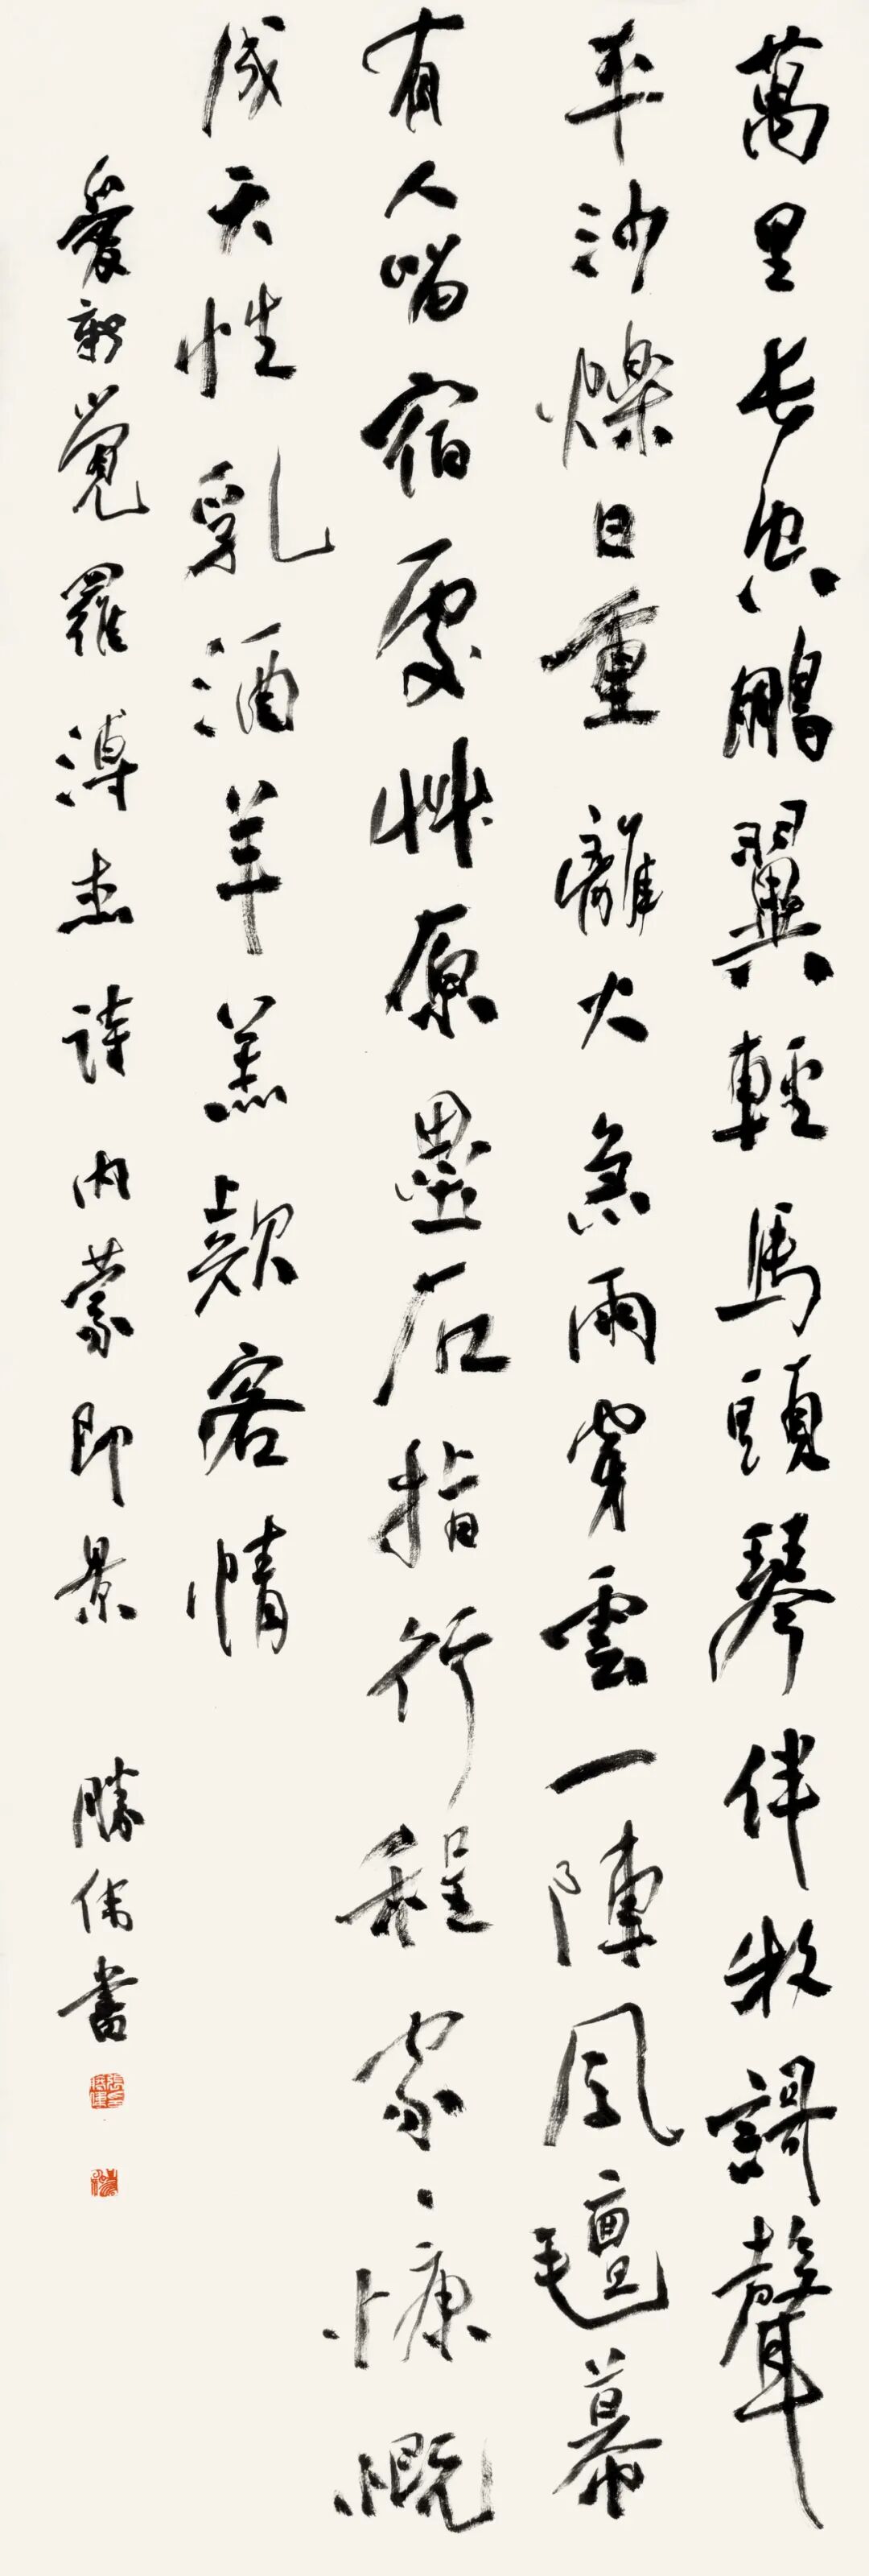 萬里長空鵬翼輕馬頭琴伴牧歌聲
平沙爍日重離火急雨穿雲一陣風氈幕
有人喵宿處草原壘石指行程家家慷慨
成天性乳酒羊羔款客情
愛新覺羅溥杰詩內蒙即景 勝偉書